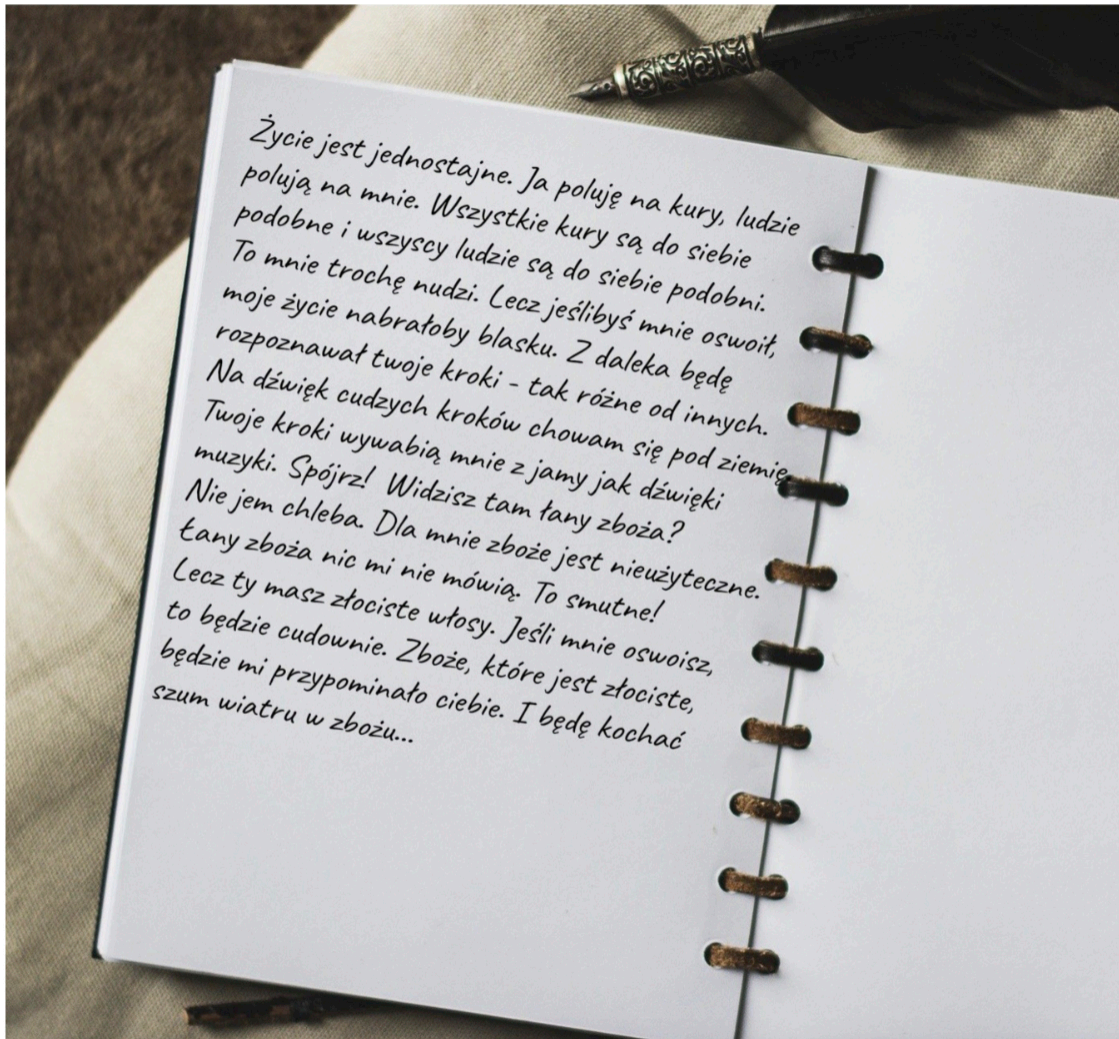 Życie jest jednostajne. Ja poluję na kury, ludzie
polują na mnie. Wszystkie kury są do siebie
podobne i wszyscy ludzie są do siebie podobni.
To mnie trochę nudzi. Lecz jeślibyś mnie oswoił,
moje życie nabrałoby blasku. Z daleka będę
rozpoznawał twoje kroki - tak różne od innych.
Na dźwięk cudzych kroków chowam się pod ziemię.
Twoje kroki wywabią mnie z jamy jak dźwięki
muzyki. Spójrz! Widzisz tam łany zboża?
Nie jem chleba. Dla mnie zboże jest nieużyteczne.
Łany zboża nic mi nie mówią. To smutne!
Lecz ty masz złociste włosy. Jeśli mnie oswoisz,
to będzie cudownie. Zboże, które jest złociste,
będzie mi przypominało ciebie. I będę kochać
szum wiatru w zbożu...